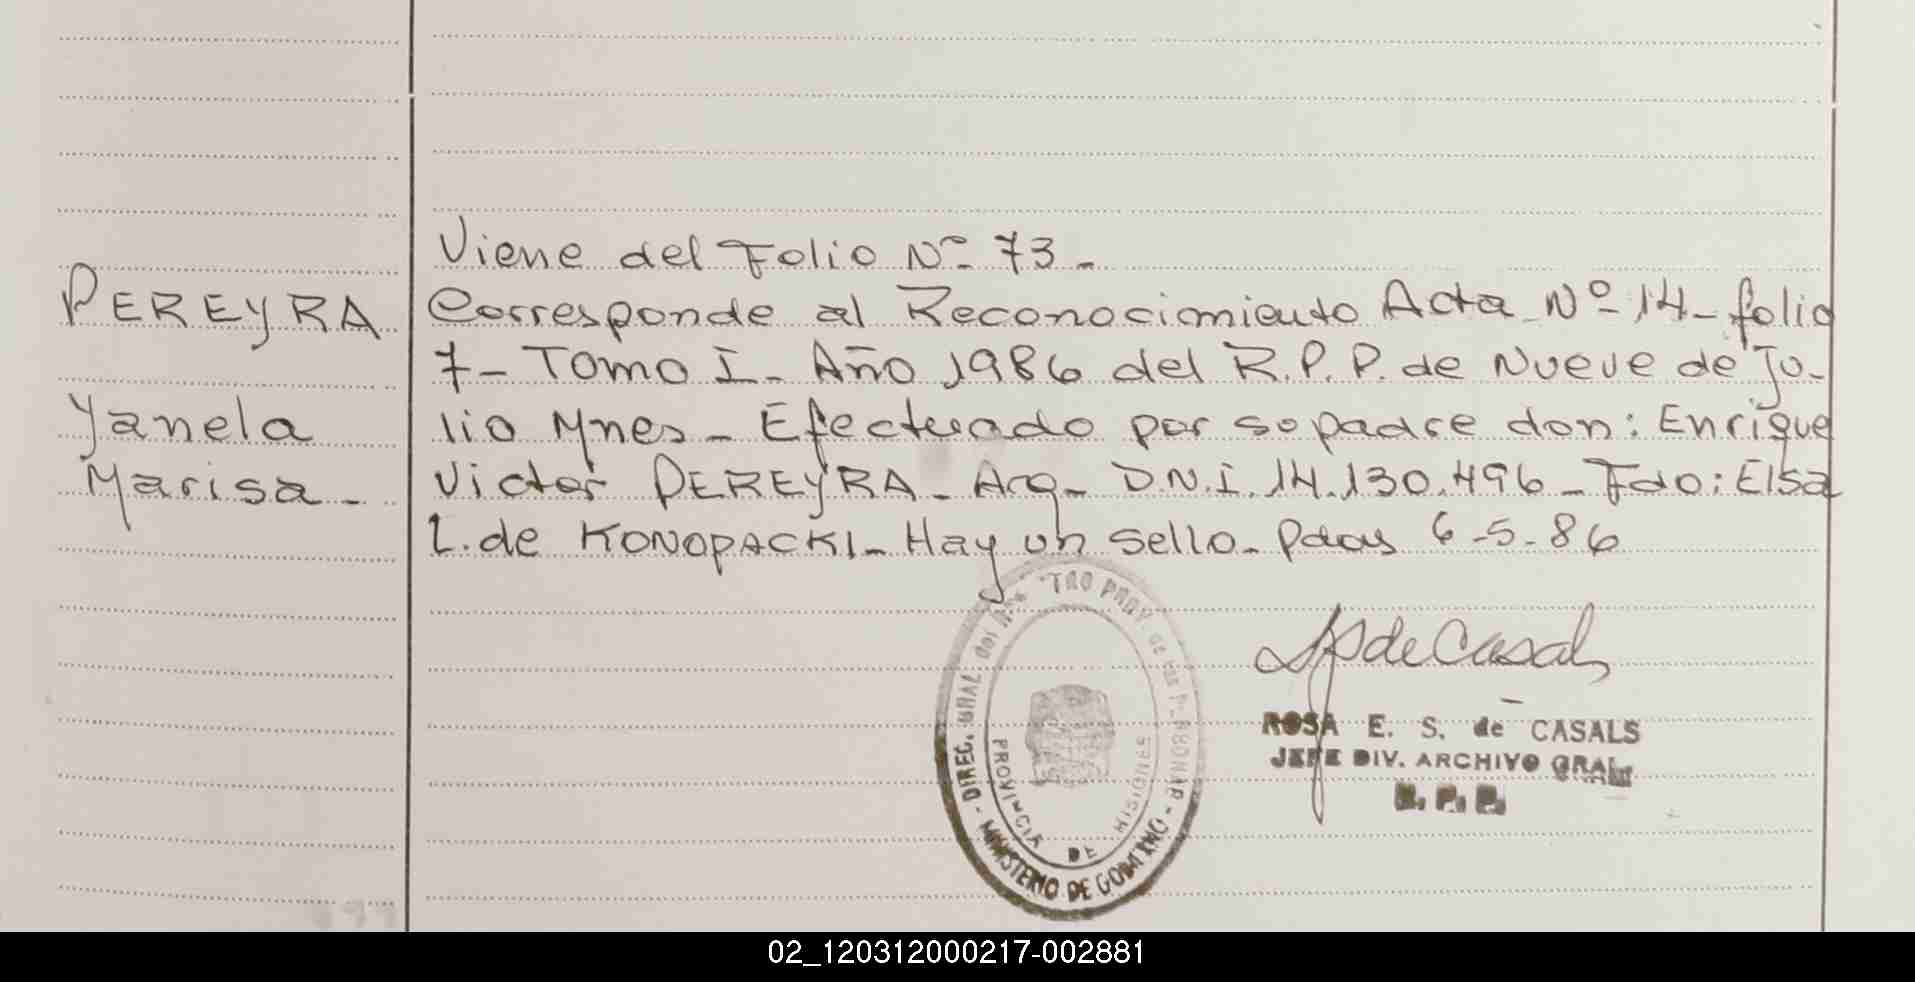 Viene del Folio Nº 73 -
PEREYRA
Corresponde al Reconocimiento Acta Nº 14 - folio
7 - Tomo I - Año 1986 del R.P.P. de Nueve de Ju-
Yanela
lio Mnes - Efectuado por su padre don: Enrique
Marisa -
Victor PEREYRA - Arg - D.N.I. 14.130.496 - Fdo: Elsa
L. de KONOPACKI - Hay un sello - Pdas 6-5-86
DIREC. GRAL del PROV. de las PERSONAS - MINISTERIO DE GOBIERNO -
PROVINCIA DE MISIONES
de Casals
ROSA E. S. de CASALS
JEFE DIV. ARCHIVO GRAL
R. P. P.
02_120312000217-002881